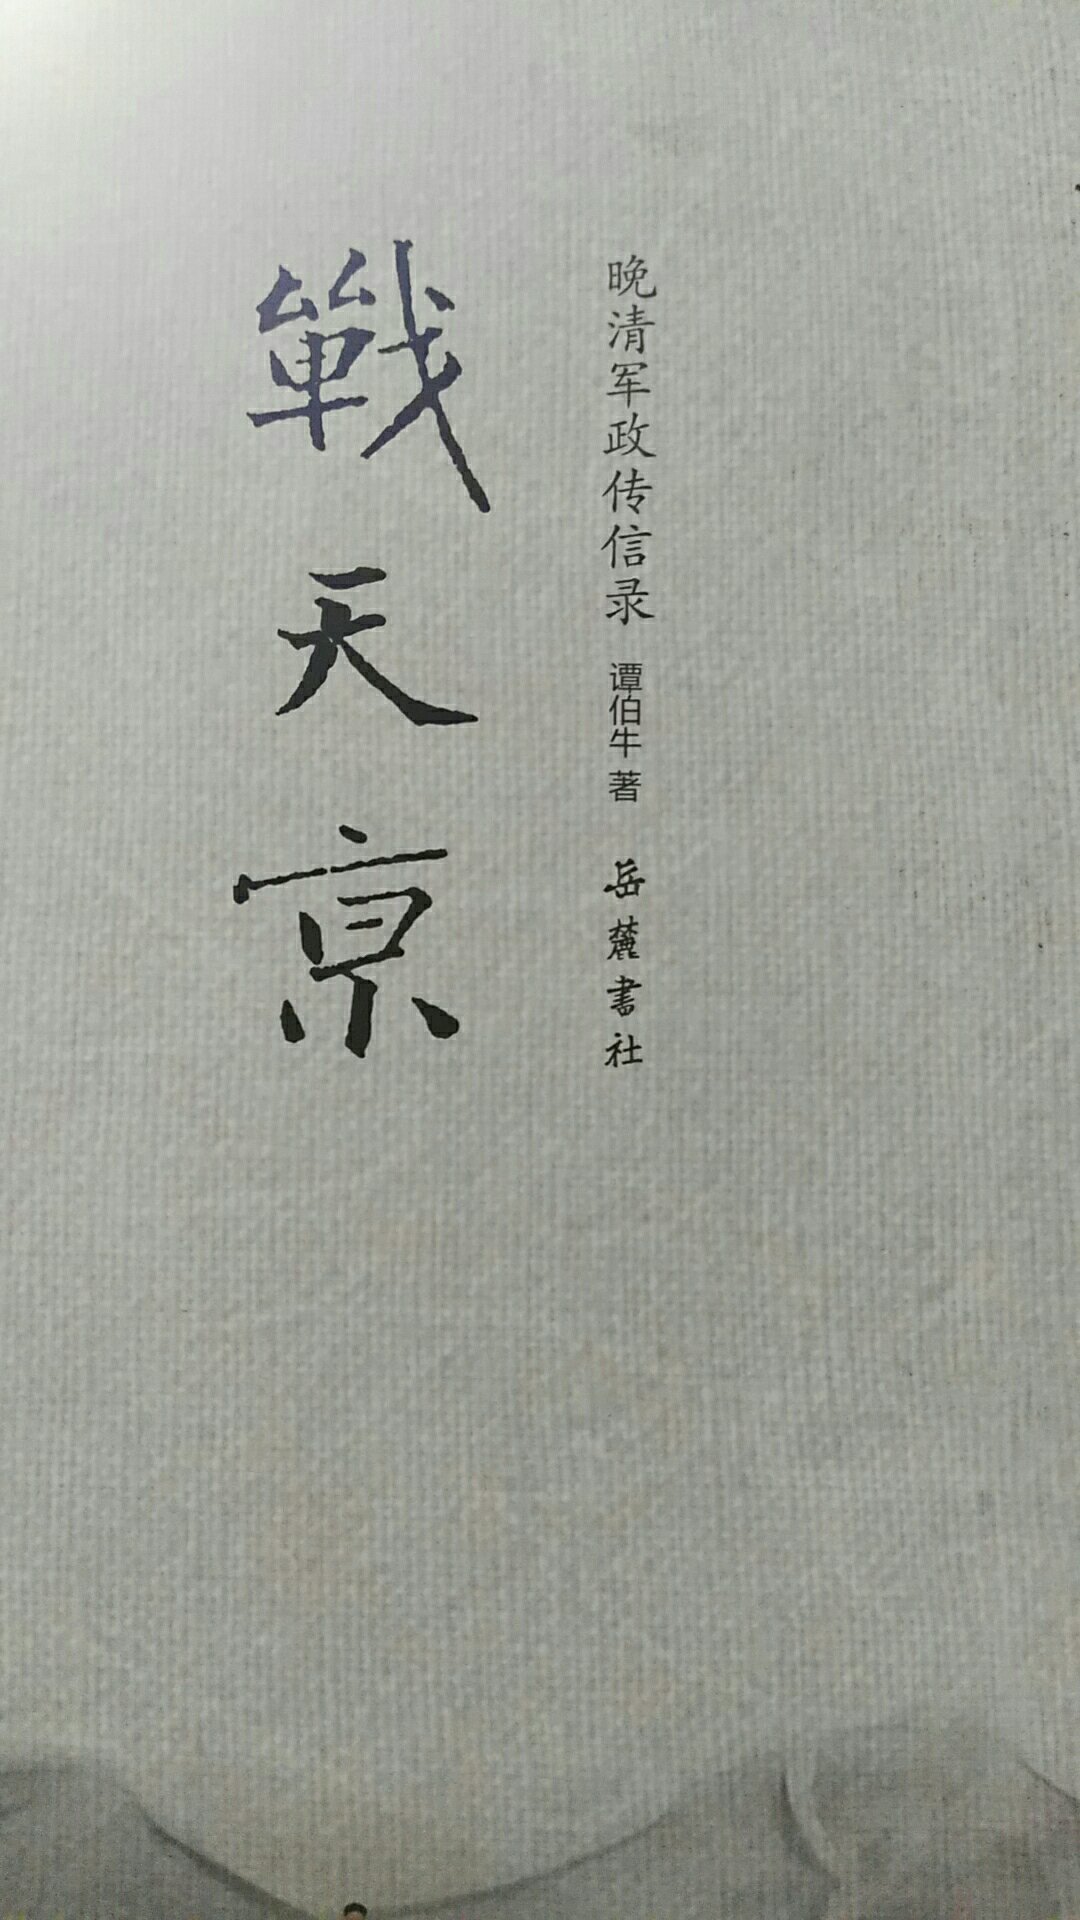 戰天京
晚清军政传信录 谭伯牛 著 岳麓書社